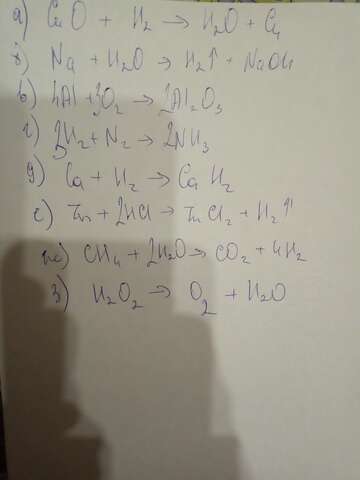 а) CuO + H₂ → H₂O + Cu
б) Na + H₂O → H₂↑ + NaOH
в) 4Al + 3O₂ → 2Al₂O₃
г) 3H₂ + N₂ → 2NH₃
д) Ca + H₂ → CaH₂
е) Zn + 2HCl → ZnCl₂ + H₂↑
ж) CH₄ + 2H₂O → CO₂ + 4H₂
з) H₂O₂ → O₂ + H₂O